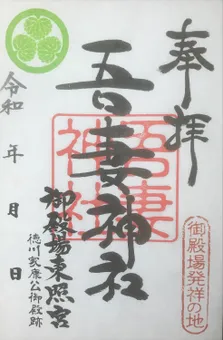 奉拝
吾妻神社
吾妻神社
御殿場発祥の地
御殿場東照宮
徳川家康公御殿跡
令和 年 月 日